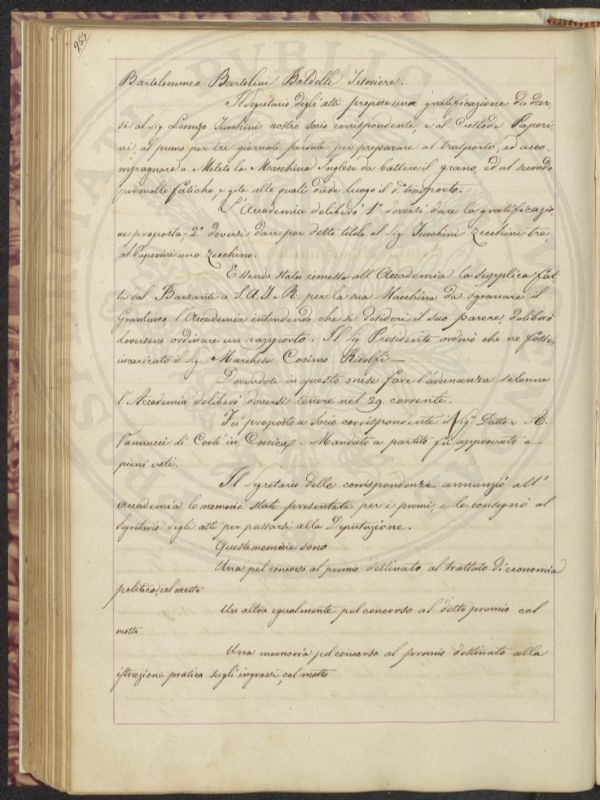 Bartolommeo Bartolini Baldelli Tesoriere.
Il Segretario degli atti propose una gratificazione da dar-
si al Sig. Lorenzo Turchini nostro socio corrispondente, e al Custode Paperi-
ni, al primo per tre giornate perdute per preparare al trasporto, ed accom-
pagnare a Meleto la Macchina Inglese da battere il grano, ed al secondo
per molte fatiche, e gite alle quali diede luogo il do. trasporto.
L'Accademia deliberò 1o. doversi dare la gratificazio-
ne proposta; 2o. doversi dare per detto titolo al Sig. Turchini Zecchini tre,
al Paperini uno Zecchino.
Essendo stata rimessa all'Accademia la supplica fat-
ta dal Barsanti a S.A.I. e R. per la sua Macchina da sgranare il
Granturco l'Accademia intendendo che si desideri il suo parere, deliberò
doversene ordinare un rapporto. Il Sig. Presidente ordinò che ne fosse
incaricato il Sig. Marchese Cosimo Ridolfi—
Dovendosi in questo mese fare l'adunanza solenne
l'Accademia deliberò doversi tenere nel 29 corrente.
Fu proposto a Socio corrispondente il Sigr. Dottor A.
Vannucci di Corte in Corsica. Mandato a partito fu approvato a
pieni voti.
Il Segretario delle corrispondenze annunziò all'
Accademia le memorie state presentate per i premi, e le consegnò al
Segretario degli atti per passarsi alla Deputazione.
Queste memorie sono
Una pel concorso al premio destinato al trattato di economia
politica, col motto
Un altra egualmente pel concorso al detto premio col
motto
Una memoria pel concorso al premio destinato alla
istruzione pratica sugli ingrassi, col motto